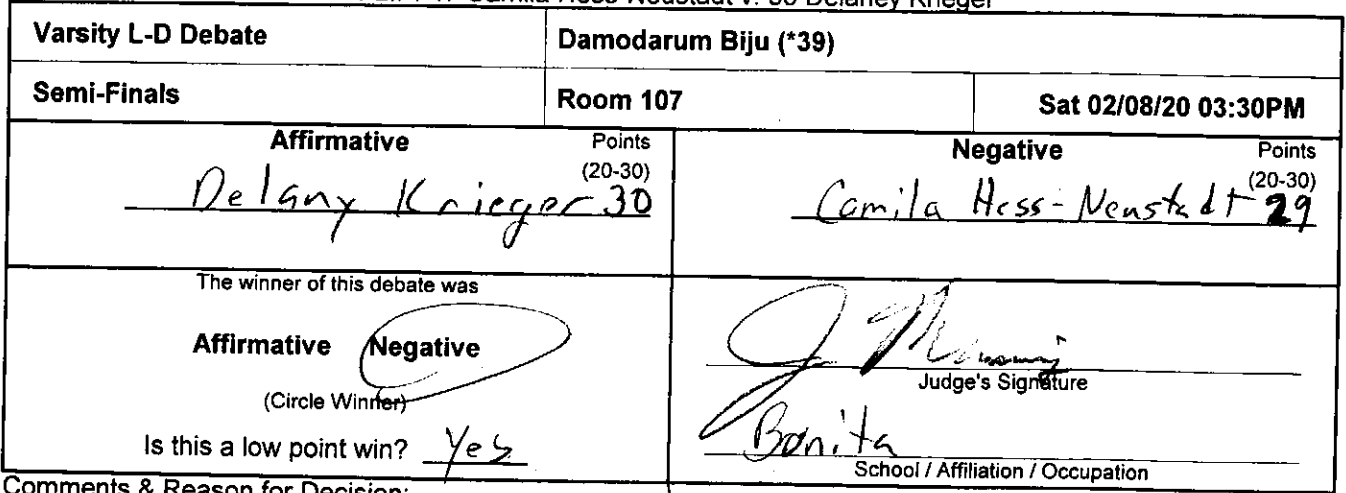 Camila Hess-Neustadt v. Delaney Krieger
Varsity L-D Debate
Damodarum Biju (*39)
Semi-Finals
Room 107
Sat 02/08/20 03:30PM
Affirmative Points
(20-30)
Delany Krieger 30
Negative Points
(20-30)
Camila Hess-Neustadt 29
The winner of this debate was
Affirmative Negative
(Circle Winner)
Is this a low point win? Yes
Judge's Signature
Bonita
School / Affiliation / Occupation
Comments & Reason for Decision: